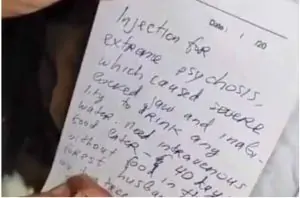 Date: / /20
Injection for
extreme psychosis,
which caused severe
locked jaw and inabi-
lity to drink any
water. need intravenous
food later - 40 days
without food in the
forest husband